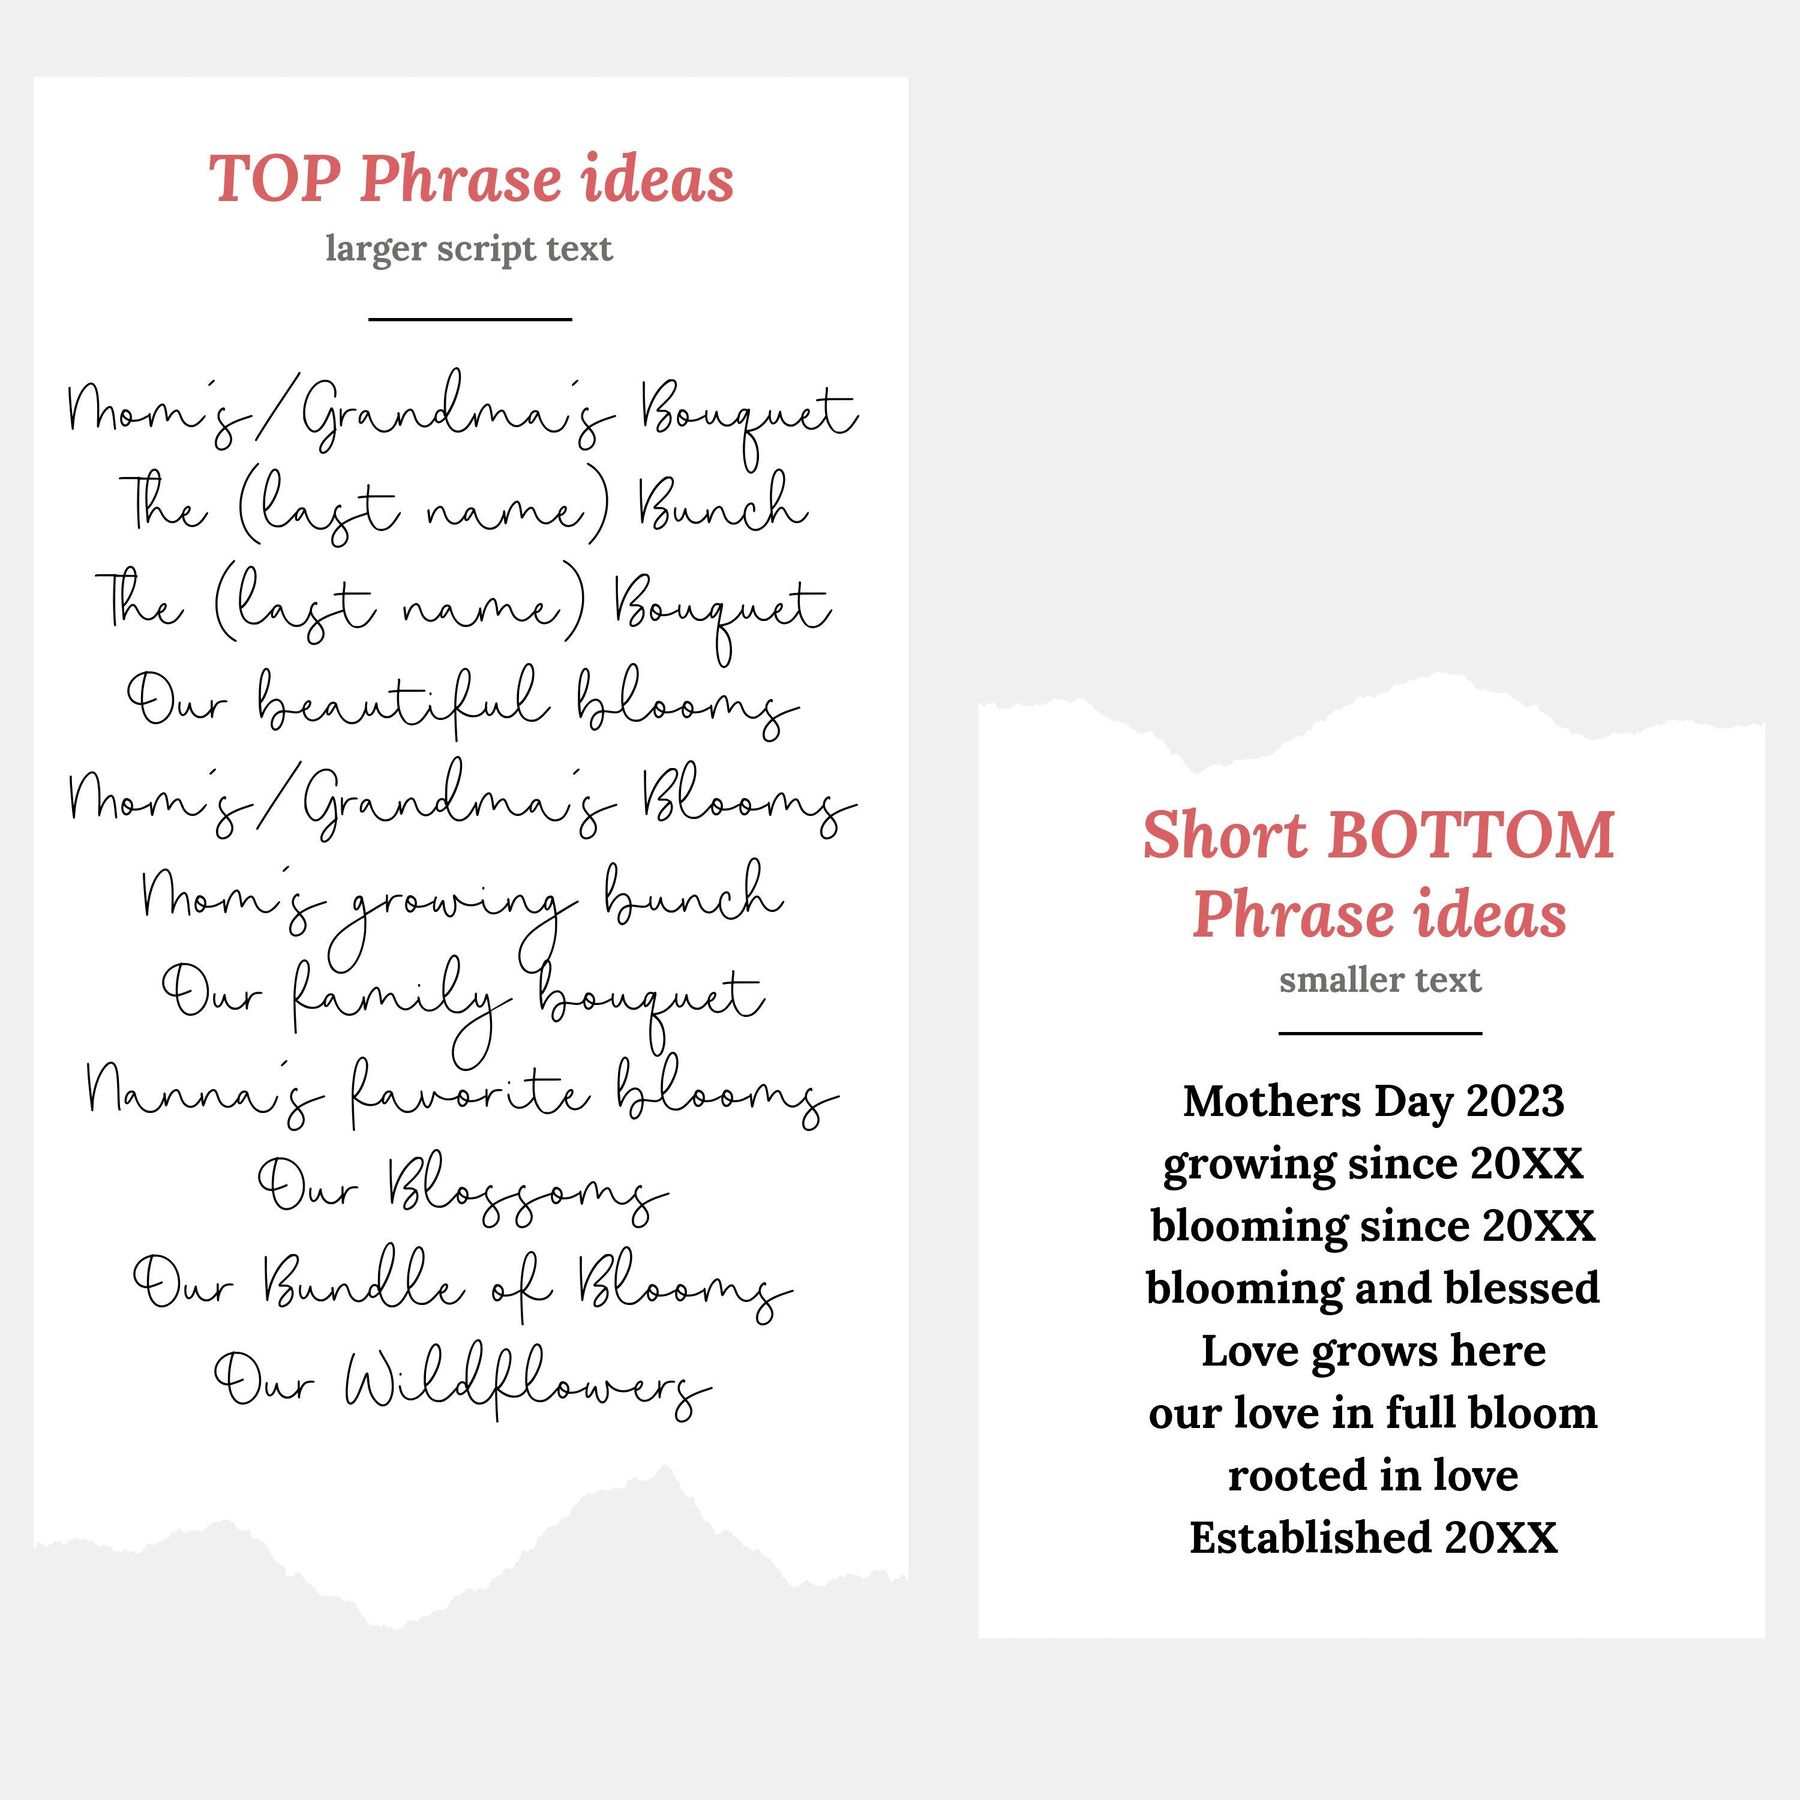 TOP Phrase ideas
larger script text
Mom's/Grandma's Bouquet
The (last name) Bunch
The (last name) Bouquet
Our beautiful blooms
Mom's/Grandma's Blooms
Mom's growing bunch
Our family bouquet
Nanna's favorite blooms
Our Blossoms
Our Bundle of Blooms
Our Wildflowers
Short BOTTOM
Phrase ideas
smaller text
Mothers Day 2023
growing since 20XX
blooming since 20XX
blooming and blessed
Love grows here
our love in full bloom
rooted in love
Established 20XX